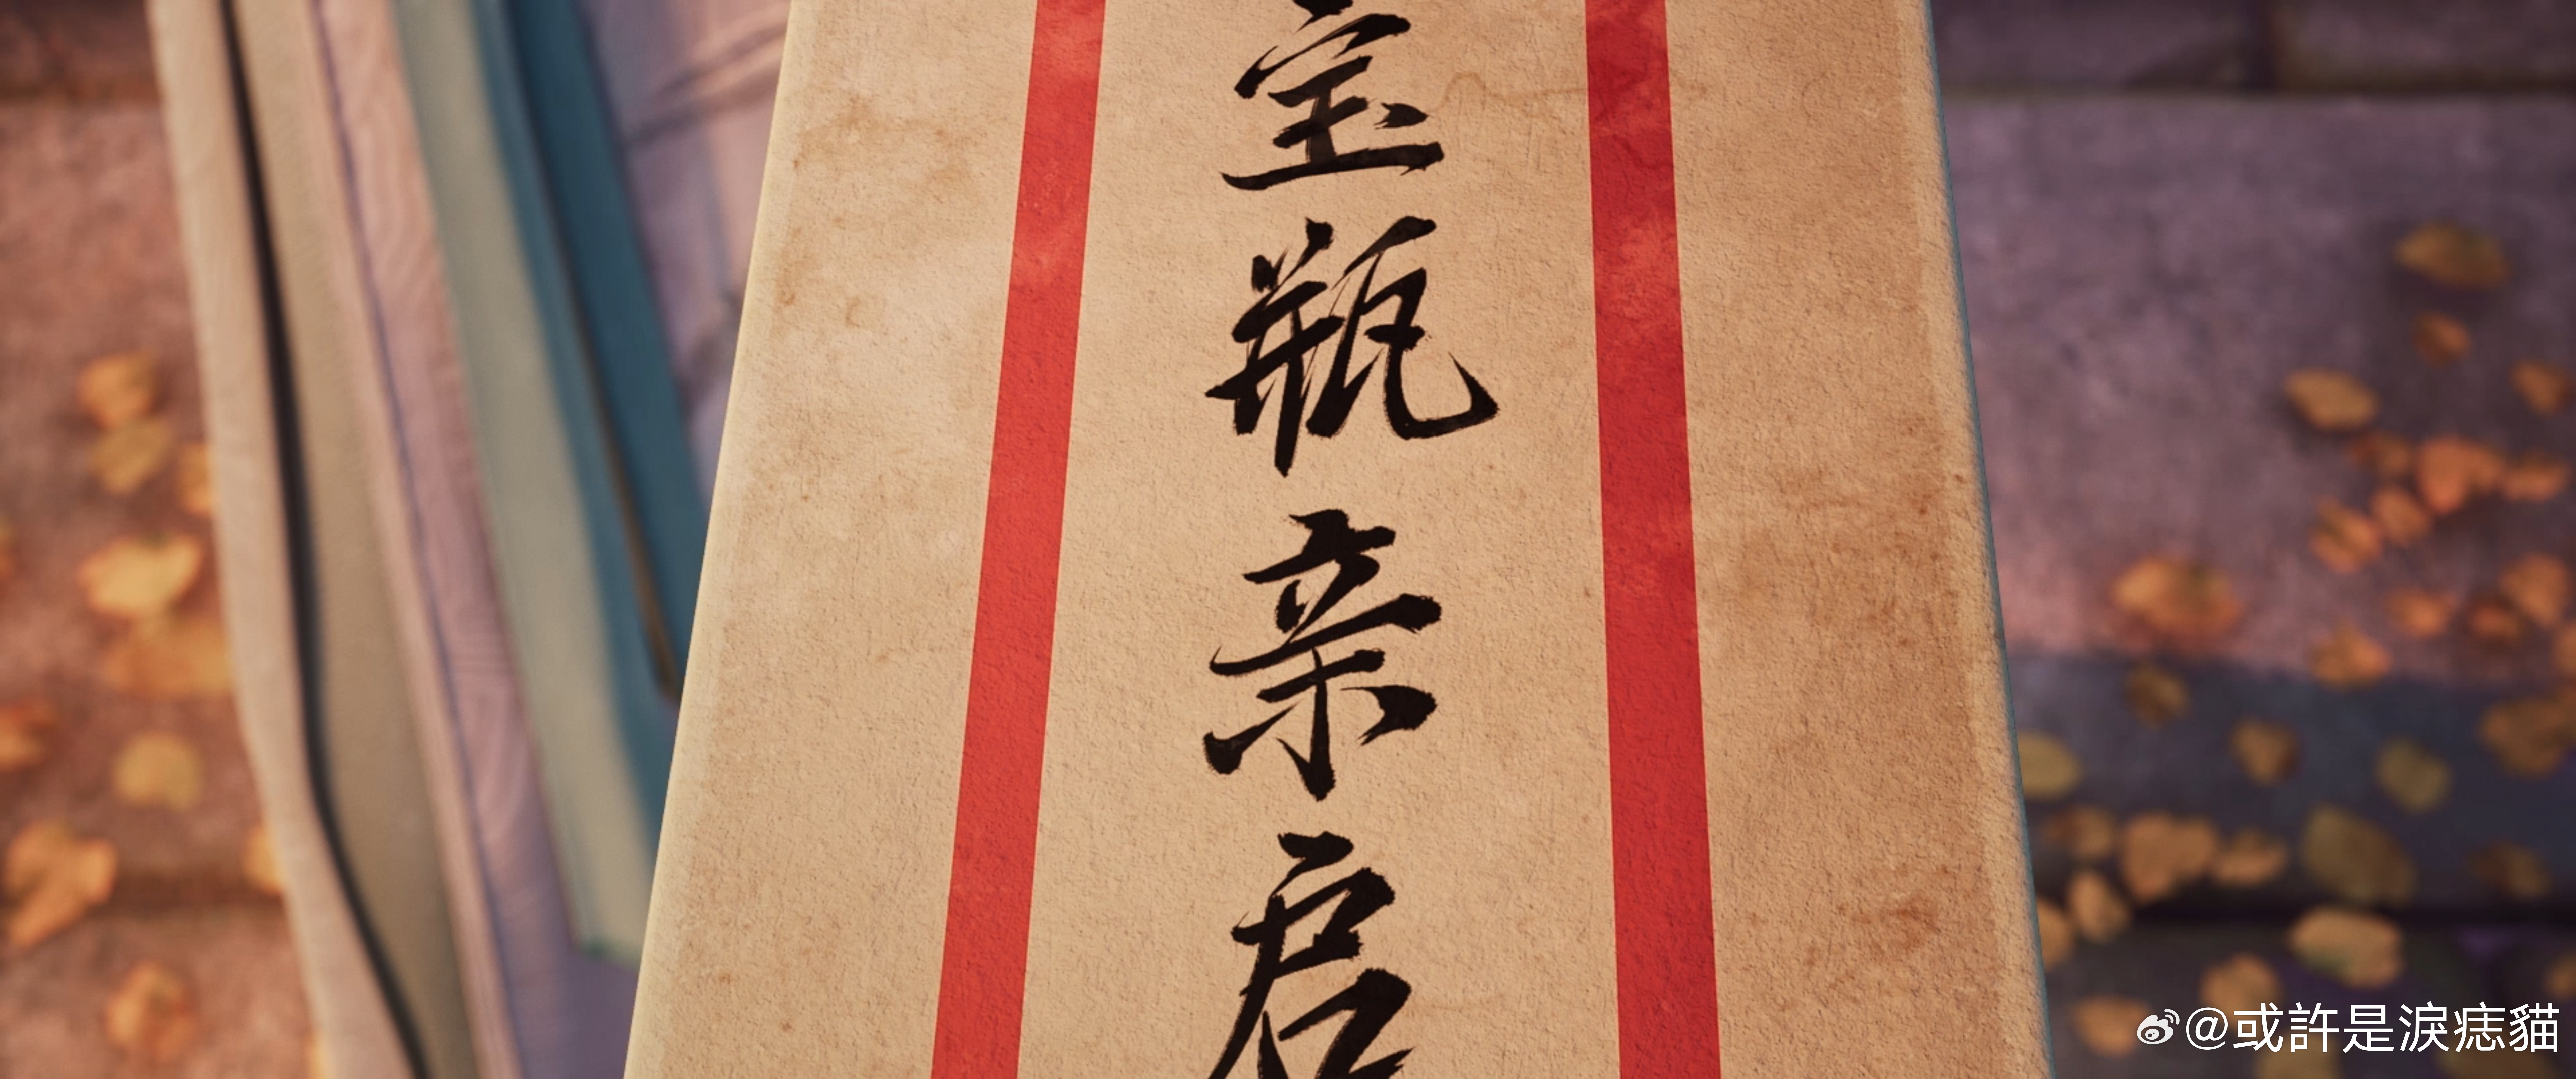 宝瓶亲启
@或許是淚痣貓